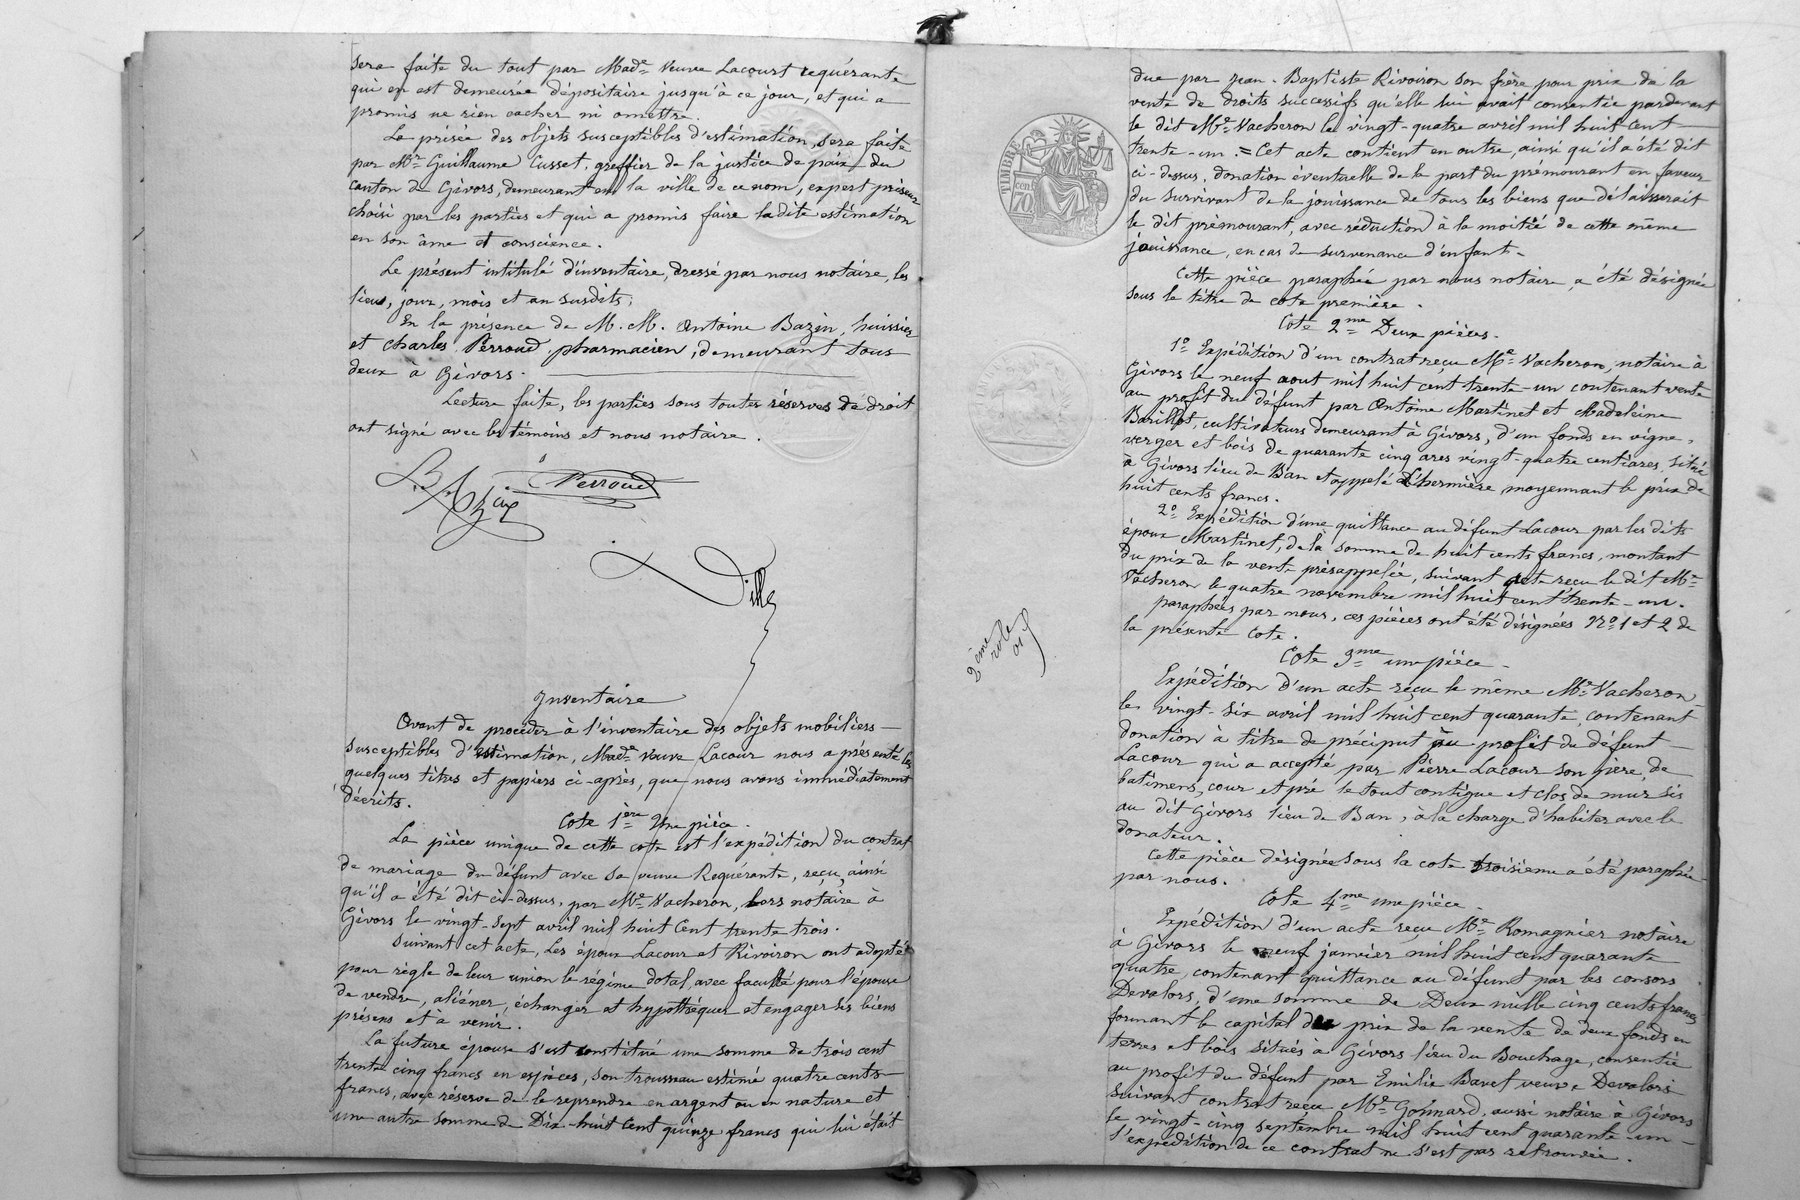 sera faite du tout par Made. Veuve Lacourt requérante
qui en est demeurée dépositaire jusqu'à ce jour, et qui a
promis ne rien cacher ni omettre.
La prisée des objets susceptibles d'estimation, sera faite
par Mr. Guillaume Cusset, greffier de la justice de paix du
canton de Givors, demeurant en la ville de ce nom, expert priseur
choisi par les parties et qui a promis faire ladite estimation
en son âme et conscience.
Le présent intitulé d'inventaire, dressé par nous notaire, les
lieu, jour, mois et an susdits,
En la présence de M. M. Antoine Bazin, huissier
et Charles Perroud, pharmacien, demeurant tous
deux à Givors.
Lecture faite, les parties sous toutes réserves de droit
ont signé avec les témoins et nous notaire.
Perroud
Inventaire
Avant de procéder à l'inventaire des objets mobiliers
susceptibles d'estimation, Made. Veuve Lacour nous a présenté les
quelques titres et papiers ci-après, que nous avons immédiatement
décrits.
Cote 1ère Une pièce.
La pièce unique de cette cote est l'expédition du contrat
de mariage du défunt avec sa veuve Requérante, reçu, ainsi
qu'il a été dit ci-dessus, par Me. Vacheron, lors notaire à
Givors le vingt-sept avril mil huit Cent trente trois.
Suivant cet acte, les époux Lacour et Rivoiron ont adopté
pour règle de leur union le régime dotal, avec faculté pour l'épouse
de vendre, aliéner, échanger et hypothéquer et engager ses biens
présens et à venir.
La future épouse s'est constitué une somme de trois cent
trente cinq francs en espèces, son trousseau estimé quatre cents
francs, avec réserve de le reprendre en argent ou en nature et
une autre somme de Dix-huit Cent quinze francs qui lui était
TIMBRE
70
due par Jean-Baptiste Rivoiron son frère pour prix de la
vente de droits successifs qu'elle lui avait consentie pardevant
le dit Me. Vacheron le vingt-quatre avril mil huit cent
trente-un. = Cet acte contient en outre, ainsi qu'il a été dit
ci-dessus, donation éventuelle de la part du prémourant en faveur
du survivant de la jouissance de tous les biens que délaisserait
le dit prémourant, avec réduction à la moitié de cette même
jouissance, en cas de survenance d'enfant.
Cette pièce paraphée par nous notaire, a été désignée
sous le titre de cote première.
Cote 2me Deux pièces.
1o Expédition d'un contrat reçu Me. Vacheron, notaire à
Givors le neuf aout mil huit cent trente-un contenant vente
au profit du défunt par Antoine Martinet et Madeleine
Barillot, cultivateurs demeurant à Givors, d'un fonds en vigne,
verger et bois de quarante cinq ares vingt-quatre centiares, situé
à Givors lieu de Ban et appelé L'hermière, moyennant le prix de
huit cents francs.
2o Expédition d'une quittance au défunt Lacour par les dits
époux Martinet, de la somme de huit cents francs, montant
du prix de la vente présappelée, suivant acte reçu le dit Me.
Vacheron le quatre novembre mil huit cent trente-un.
paraphées par nous, ces pièces ont été désignées No 1 et 2 de
la présente Cote.
2ème
rôle
Cote 3me une pièce.
Expédition d'un acte reçu le même Me. Vacheron
le vingt-six avril mil huit cent quarante, contenant
donation à titre de préciput au profit du défunt
Lacour qui a accepté par Pierre Lacour son père, de
batimens, cour et pré le tout contigue et clos de mur sis
au dit Givors lieu de Ban, à la charge d'habiter avec le
donateur.
Cette pièce désignée sous la cote troisième a été paraphée
par nous.
Cote 4me une pièce.
Expédition d'un acte reçu Me. Romagnier notaire
à Givors le neuf janvier mil huit cent quarante
quatre, contenant quittance au défunt par les consors
Devalors, d'une somme de Deux mille cinq cents francs
formant le capital du prix de la vente de deux fonds en
terres et bois situés à Givors lieu du Bouchage, consentie
au profit du défunt par Emilie Bavet veuve Devalors
suivant contrat reçu Me. Gonnard, aussi notaire à Givors
le vingt-cinq septembre mil huit cent quarante-un
l'expédition de ce contrat ne s'est pas retrouvée.